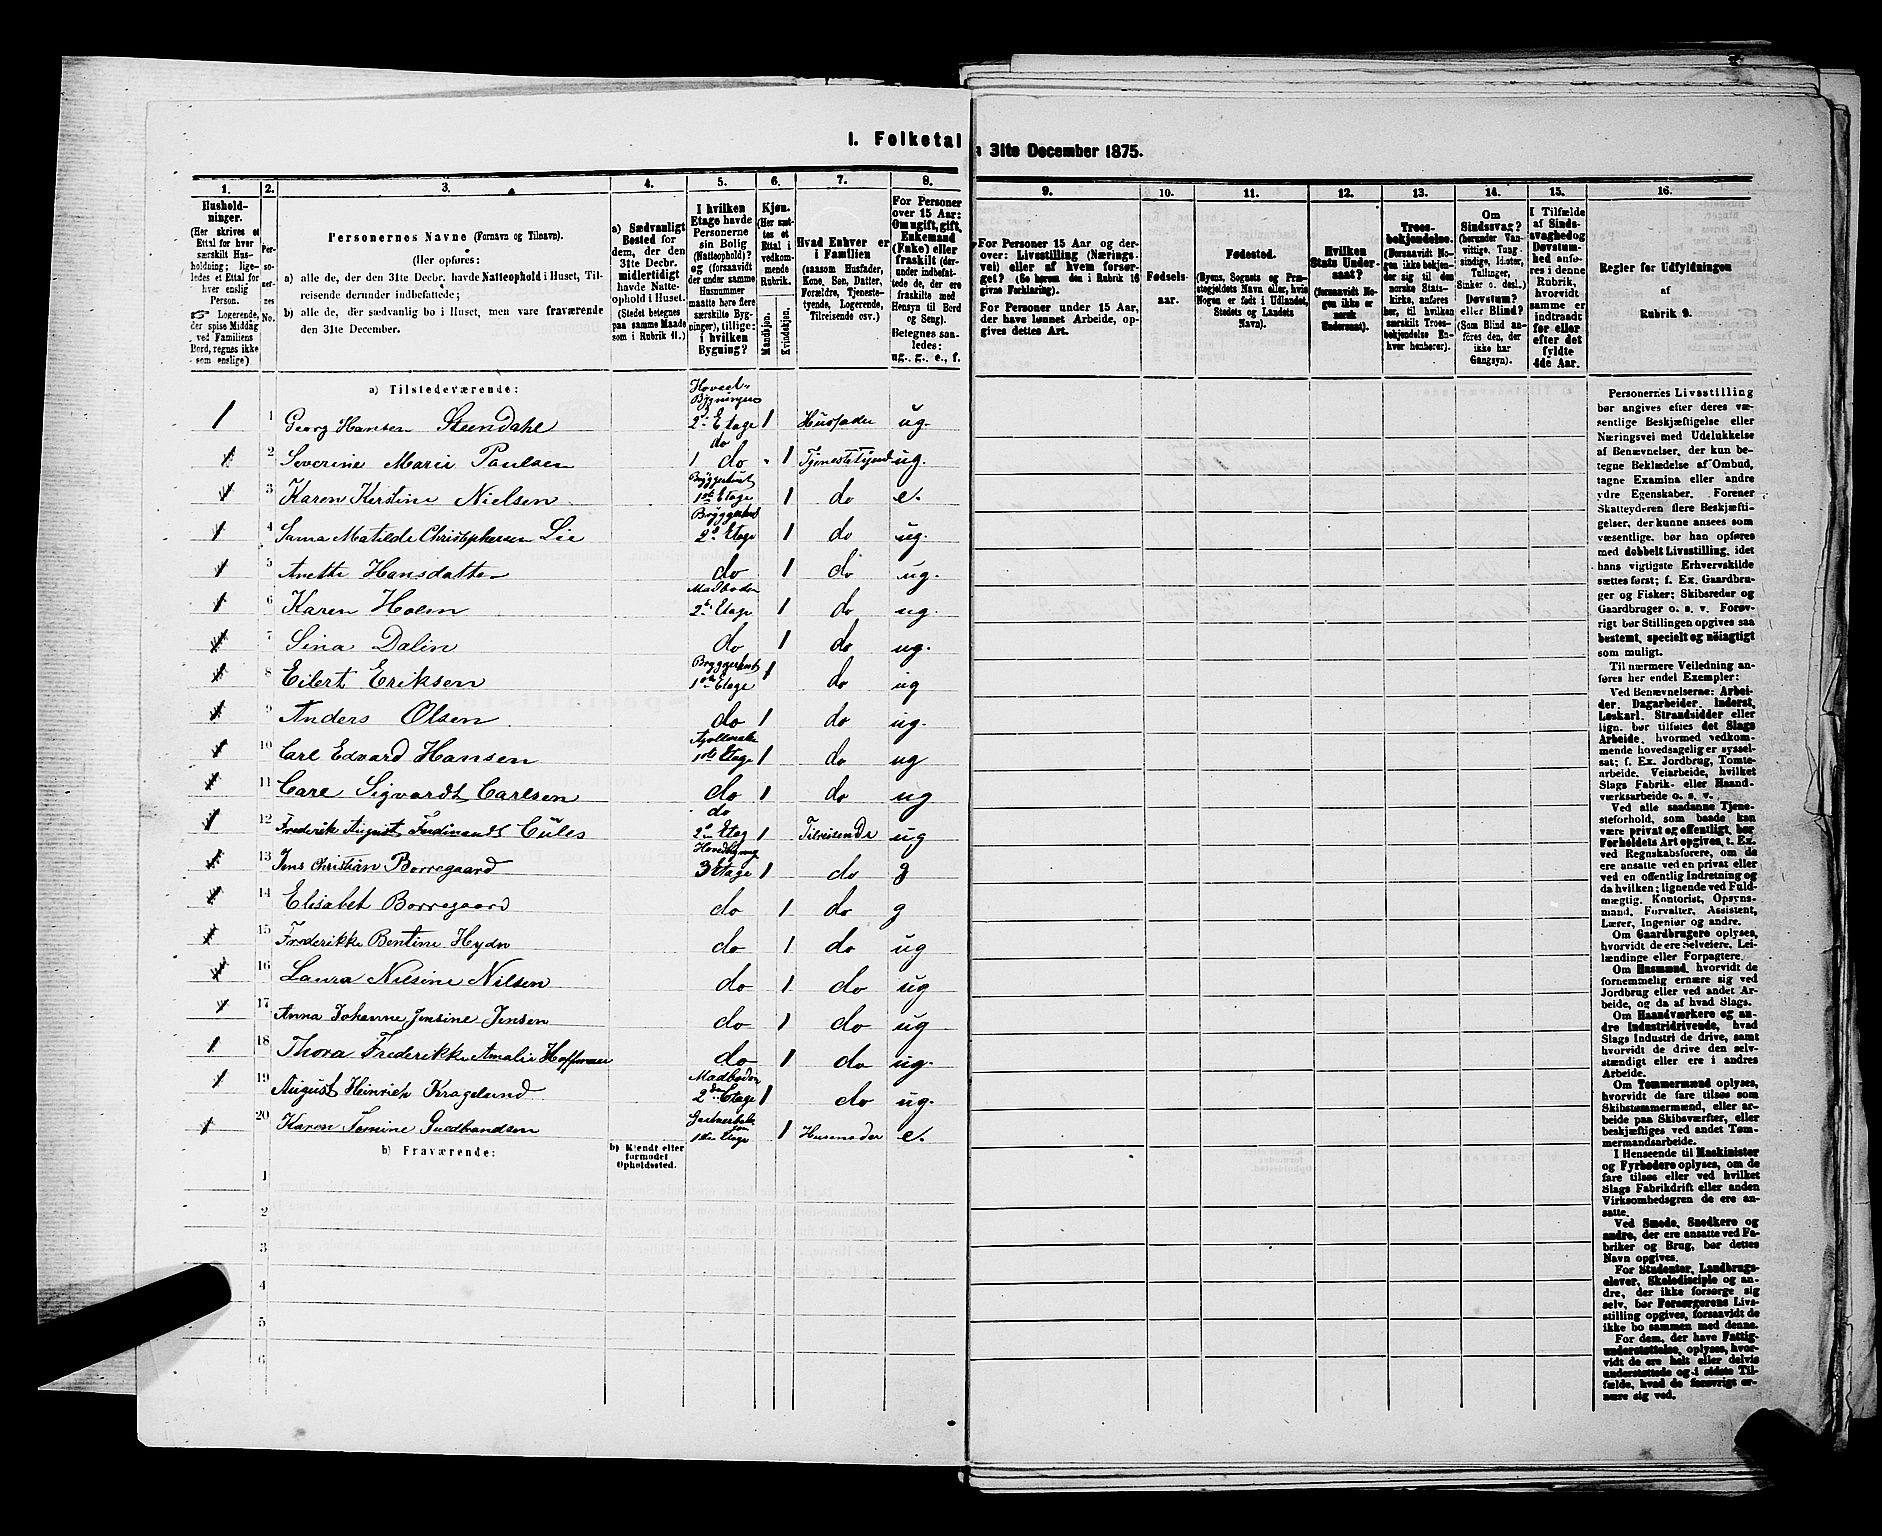 I. Folketal
n 31te December 1875.
1.
2.
3.
4.
5.
6.
7.
8.
9.
10.
11.
12.
13.
14.
15.
16.
Hushold-
ninger.
(Her skrives et
Ettal for hver
særskilt Hus-
holdning; lige-
ledes et Ettal for
hver enslig
Person.
☞ Logerende,
der spise Middag
ved Familiens
Bord, regnes ikke
som enslige)
Per-
so-
ner-
nes
No.
Personernes Navne (Fornavn og Tilnavn).
(Her opføres:
a) alle de, der den 31te Decbr. havde Natteophold i Huset, Til-
reisende derunder indbefattede;
b) alle de, der sædvanlig bo i Huset, men vare fraværende
den 31te December.
a) Sædvanligt
Bosted for
dem, der den
31te Decbr.
midlertidigt
havde Natte-
ophold i Huset.
(Stedet betegnes
paa samme Maade
som i Rubrik 11.)
I hvilken
Etage havde
Personerne
sin Bolig
(Natteophold)?
og (forsaavidt
der under samme
Husnummer
maatte høre flere
særskilte Byg-
ninger), tillige:
i hvilken
Bygning?
Kjøn.
(Her sæt-
tes et
Ettal i
vedkom-
mende
Rubrik.
Mandkjøn.
Kvindekjøn.
Hvad Enhver er
i Familien
(saasom Husfader,
Kone, Søn, Datter,
Forældre, Tjeneste-
tyende, Logerende,
Tilreisende osv.)
For Personer
over 15 Aar:
Om ugift, gift,
Enkemand
(Enke) eller
fraskilt (der-
under indbefat-
tede de, der ere
fraskilte med
Hensyn til Bord
og Seng).
Betegnes saa-
ledes:
ug., g., e., f.
For Personer 15 Aar og der-
over: Livsstilling (Nærings-
vei) eller af hvem forsør-
get? (Se herom den i Rubrik 16
givne Forklaring).
For Personer under 15 Aar,
der have lønnet Arbeide, op-
gives dettes Art.
Fødsels-
aar.
Fødested.
(Byens, Sognets og Præ-
stegjeldets Navn eller, hvis
Nogen er født i Udlandet,
Stedets og Landets
Navn).
Hvilken
Stats Under-
saat?
(forsaavidt No-
gen ikke er
norsk
Undersaat).
Troes-
bekjendelse.
(Forsaavidt No-
gen ikke bekjen-
der sig til den
norske Stats-
kirke, anføres
her, til hvilket
særskilt Troes-
bekjendelse En-
hver henhører).
Om
Sindssvag?
(herunder Van-
vittige, Tung-
sindige, Idioter,
Tullinger,
Sinker o. desl.,)
Døvstum?
eller Blind?
(Som Blind an-
føres den, der
ikke har
Gangsyn).
I Tilfælde
af Sinds-
svaghed og
Døvstum-
hed anfø-
res i denne
Rubrik,
hvorvidt
samme er
indtraadt
før eller
efter det
fyldte
4de Aar.
Regler for Udfyldningen
af
Rubrik 9.
a) Tilstedeværende:
1 1 Georg Hansen Steendahl 2den Etage 1 Husfader ug.
1 2 Severine Marie Paulsen do 1 do 1 Tjenestetyend ug.
1 3 Karen Kirstine Nielsen 1ste Etage 1 do e.
1 4 Matilde Christophersen Lie 2d Etage 1 do ug.
1 5 Anette Hansdatter do 1 do ug.
1 6 Karen Holm Madboden 2 Etage 1 do ug.
1 7 Sina Dalin do 1 do ug.
1 8 Eilert Eriksen 1ste Etage 1 do ug
1 9 Anders Olsen do 1 do ug.
1 10 Carl Edvard Hansen 1ste Etage 1 do ug
1 11 Carl Sigvardt Carlsen do 1 do ug
1 12 Frederik August Ferdinandt do 2d Etag 1 Tilreisende ug
1 13 Jens Christian Borregaard 3 Etage 1 do g
1 14 Elisabet Borregaard do 1 do g
1 15 Frederikke Bentine Hydn do 1 do ug
1 16 Laura Nilsine Nilsen do 1 do ug
1 17 Anna Johanne Jensine Jensen do 1 do ug
1 18 Thora Frederikke Amalie Hoffmann do 1 do ug.
1 19 August Heinrich Kragelund Madboden 2den Etage 1 do ug.
1 20 Karen Gudbrandsen 1ste Etage 1 Husmoder e.
b) Fraværende:
b) Kjendt eller
formodet
Opholdssted.
1
2
3
4
5
6
Personernes Livsstilling
bør angives efter deres væ-
sentlige Beskjæftigelse eller
Næringsvei med Udelukkelse
af Benævnelser, der kun be-
tegne Beklædelse af Ombud,
tagne Examina eller andre
ydre Egenskaber. Forener
Skatteyderen flere Beskjæfti-
gelser, der kunne ansees som
væsentlige, bør han opføres
med dobbelt Livsstilling, idet
hans vigtigste Erhvervskilde
sættes først; f. Ex. Gaardbru-
ger og Fisker; Skibsreder og
Gaardbruger o. s. v. Forøv-
rigt bør Stillingen opgives saa
bestemt, specielt og nøiagtigt
som muligt.
Til nærmere Veiledning an-
føres her endel Exempler:
Ved Benævnelserne: Arbei-
der, Dagarbeider, Inderst,
Løskarl, Strandsidder eller
lign. bør tilføies det Slags
Arbeide, hvormed vedkom-
mende hovedsagelig er syssel-
sat; f. Ex. Jordbrug, Tomte-
arbeide, Veiarbeide, hvilket
Slags Fabrik- eller Haand-
værksarbeide o. s. v.
Ved alle saadanne Tjene-
steforhold, som baade kan
være privat og offentligt, bør
Forholdets Art opgives, t. Ex.
ved Regnskabsførere, om de
ere ansatte ved en privat eller
ved en offentlig Indretning og
da hvilken; lignende ved Fuld-
mægtig, Kontorist, Opsyns-
mand, Forvalter, Assistent,
Lærer, Ingeniør og andre.
Om Gaardbrugere oplyses,
hvorvidt de ere Selveiere, Lei-
lændinge eller Forpagtere.
Om Husmænd, hvorvidt de
fornemmelig ernære sig ved
Jordbrug eller ved andet Ar-
beide, og da af hvad Slags.
Om Haandværkere og an-
dre Industridrivende, hvad
Slags Industri de drive, samt
hvorvidt de drive den selv-
stændigt eller ere i andres
Arbeide.
Om Tømmermænd oplyses,
hvorvidt de fare tilsøs som
Skibstømmermænd, eller ar-
beide paa Skibsværfter, eller
beskjæftiges ved andet Tøm-
mermandsarbeide.
I Henseende til Maskinister
og Fyrbødere oplyses, om de
fare tilsøs eller ved hvilket
Slags Fabrikdrift eller anden
Virksomhedsgren de ere an-
satte.
Ved Smede, Snedkere og
andre, der ere ansatte ved Fa-
briker og Brug, bør dettes
Navn opgives.
For Studenter, Landbrugs-
elever, Skoledisciple og an-
dre, der ikke forsørge sig
selv, bør Forsørgerens Livs-
stilling opgives, forsaavidt de
ikke bo sammen med denne.
For dem, der have Fattig-
understøttelse, oplyses, hvor-
vidt de ere helt eller delvis
understøttede og i sidste Til-
fælde, hvad de forøvrigt er-
nære sig ved.